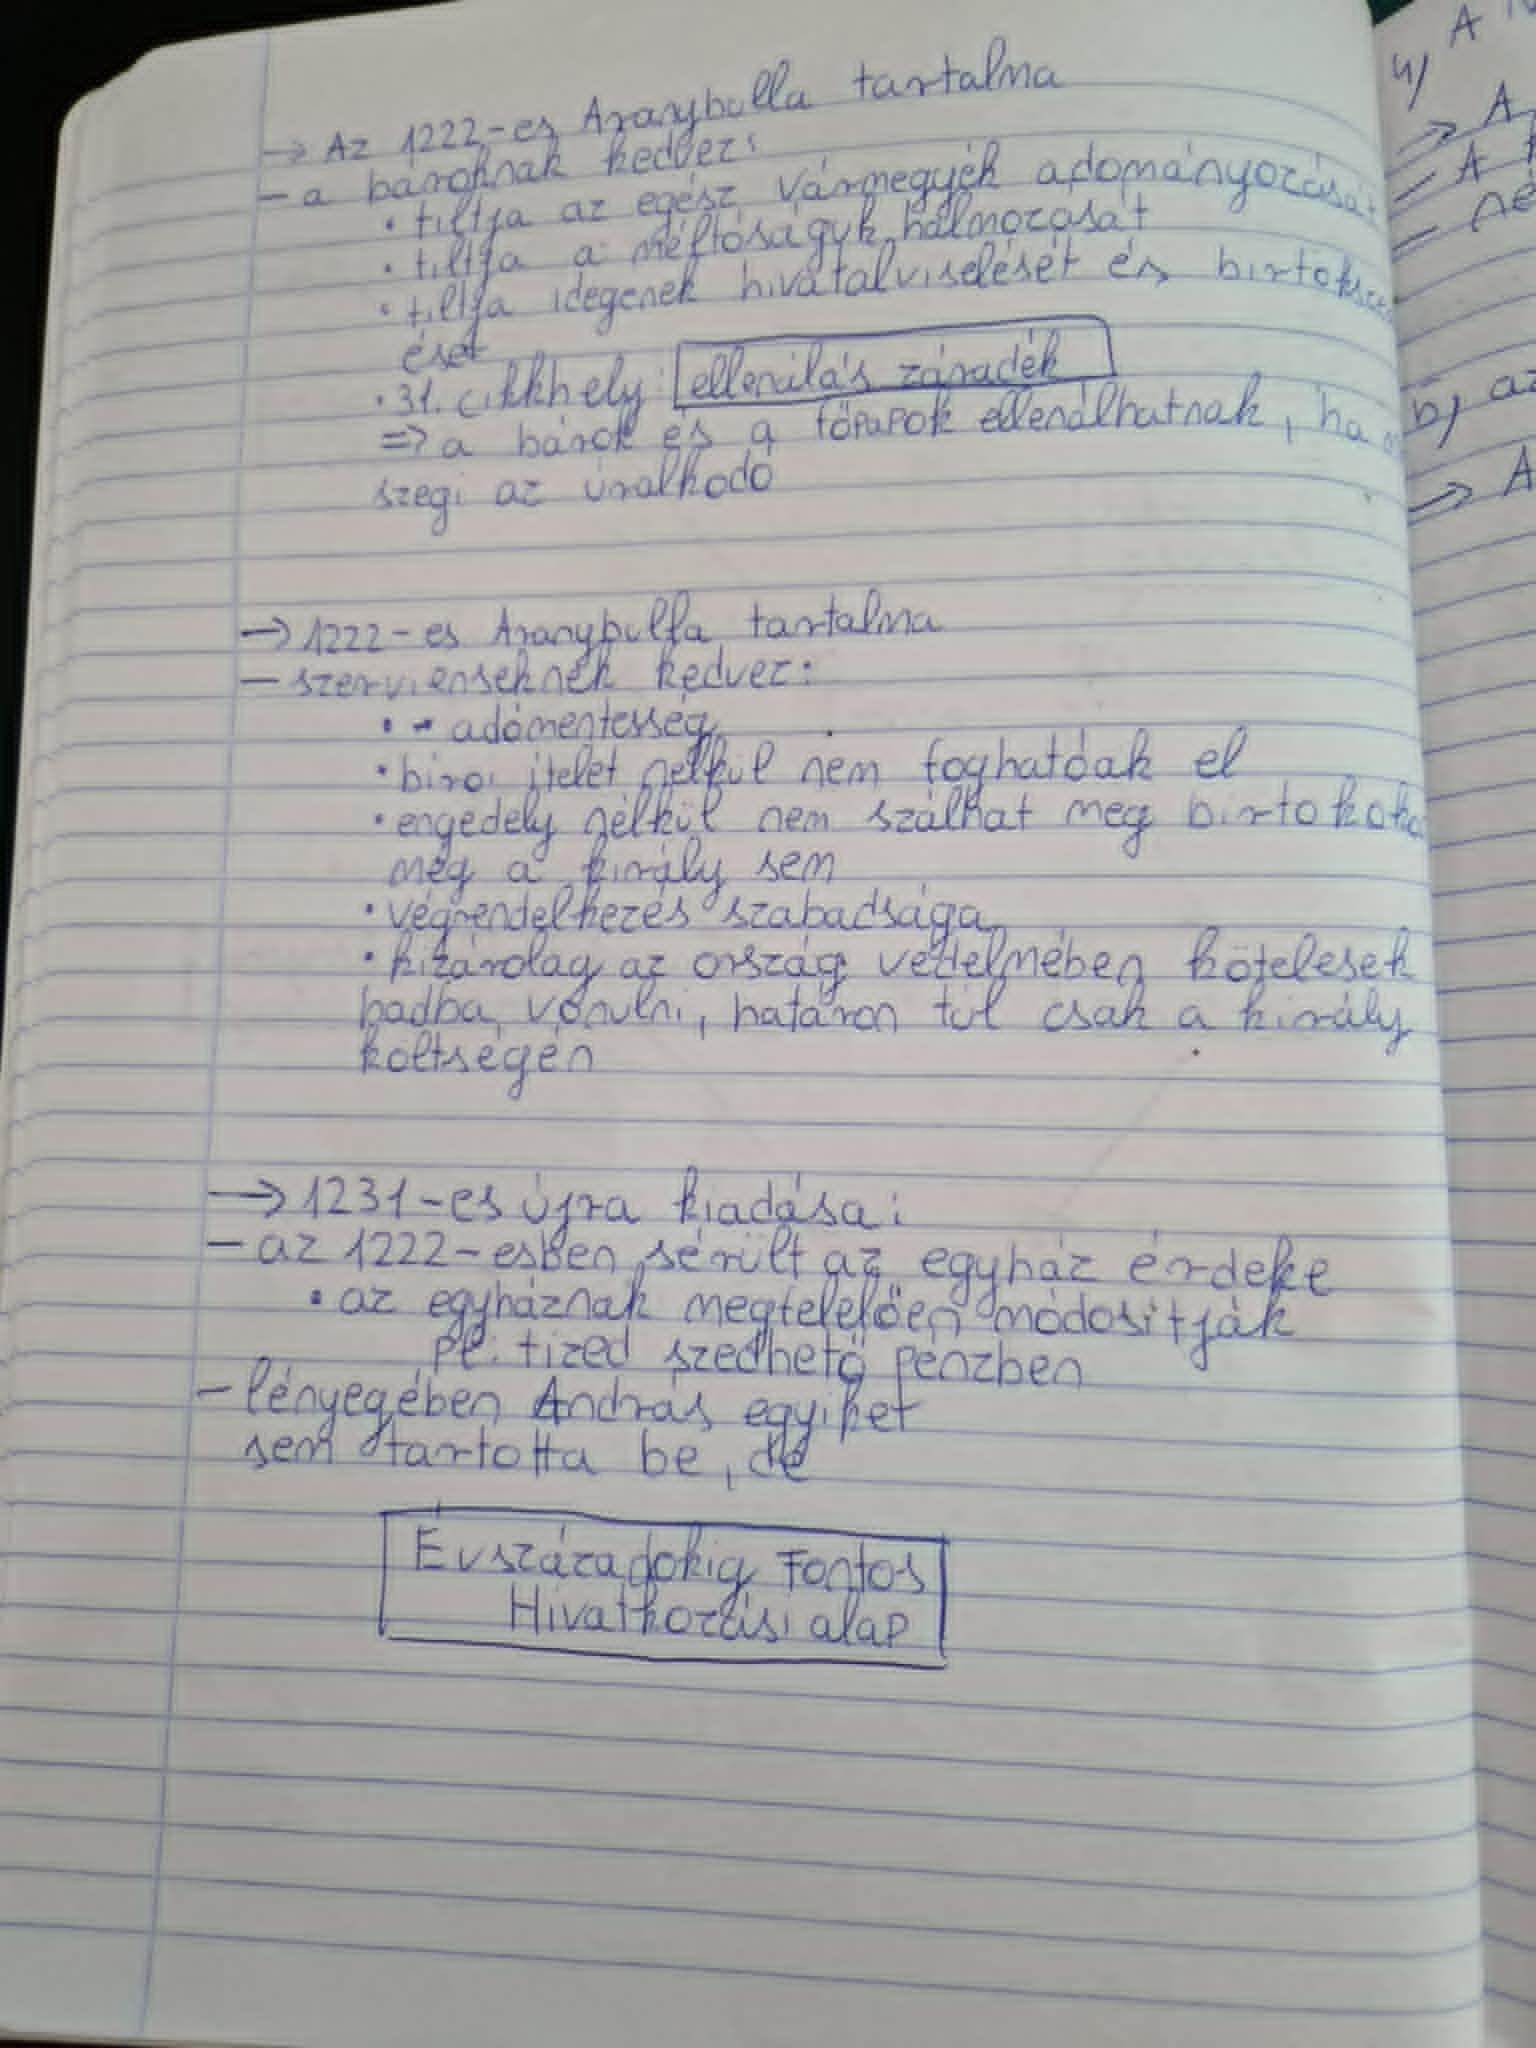 → Az 1222-es Aranybulla tartalma
- a báróknak kedvez:
• tiltja az egész vármegyék adományozását
• tiltja a méltóságuk halmozását
• tiltja idegenek hivatalviselését és birtoksze
ését
• 31. cikkhely: ellenálás záradék
=> a bárók és a főpapok ellenálhatnak, ha
szegi az uralkodó
→ 1222-es Aranybulla tartalma
- szervienseknek kedvez:
• - adómentesség
• birói itélet nélkül nem foghatóak el
• engedély nélkül nem szálhat meg birtokoka
még a király sem
• végrendelkezés szabadsága
• kizárólag az ország védelmében kötelesek
hadba vonulni, határon túl csak a király
költségén
→ 1231-es újra kiadása:
- az 1222-esben sérült az egyház érdeke
• az egyháznak megfelelően módosítják
pl. tized szedhető pénzben
- lényegében András egyiket
sem tartotta be, de
Évszázadokig Fontos
Hivatkozási alap
4) A
→ A
A
né
b) az
⇒ A